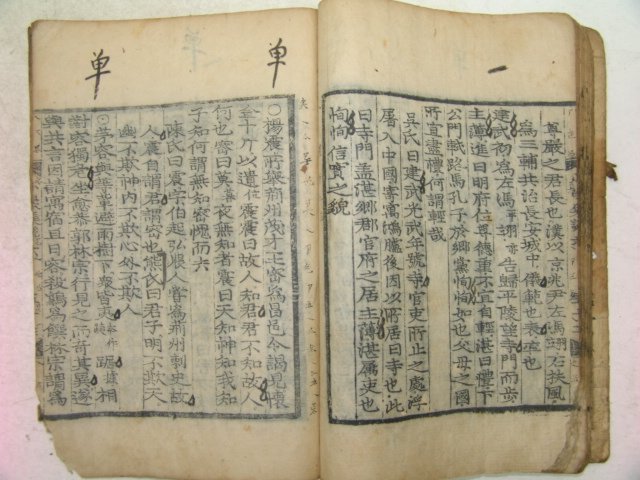 一
尊嚴之君長也漢以京兆尹左馮翊右扶風
為三輔共治長安城中儀範也表率也
建武初為左馮翊告歸平陵望寺門而步
主薄進曰明府位尊德重不宜自輕湛曰禮下
公門軾路馬孔子於鄉黨恂恂如也父母之國
所宜盡禮何謂輕哉
吳氏曰建武光武年號寺官吏所止之處浮
屠入中國寄寓鴻臚後因以所居曰寺也此
曰寺門盖湛鄉郡官府之居主薄湛屬吏也
恂恂信實之貌
单
单
○楊震所擧荊州茂才王密爲昌邑令謁見懷
金十斤以遺震震曰故人知君君不知故人
何也密曰莫夜無知者震曰天知神知我知
子知何謂無知密愧而去
陳氏曰震字伯起弘農人嘗爲荊州刺史故
人震自謂君謂密也熊氏曰君子明不欺天
幽不欺神內不欺心外不欺人
○茅容與等輩避雨樹下衆皆夷踞相
對容獨危坐愈恭郭林宗行見之而奇其異遂
與共言因請寓宿旦日容殺鷄爲饌林宗謂爲